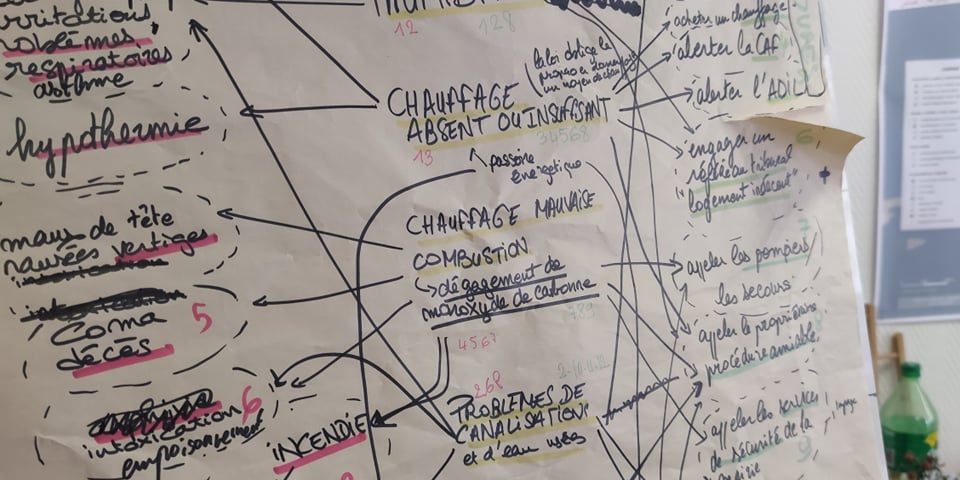 irritations
problèmes
respiratoires
asthme
hypothermie
maux de tête
nausées vertiges
intoxication
Coma
décès
5
intoxication
empoisonnement
6
INCENDIE
12
128
CHAUFFAGE
ABSENT OU INSUFFISANT
13
34568
la loi oblige le
proprio à donner
un moyen de chauf
passoire
énergétique
CHAUFFAGE MAUVAISE
COMBUSTION
dégagement de
monoxyde de carbonne
789
4567
268
2.10.11.12
PROBLÈMES DE
CANALISATIONS
et d'eau usées
acheter un chauffage
alerter la CAF
alerter l'ADIL
engager un
référé au tribunal
"logement indécent"
6
7
appeler les pompiers
les secours
appeler le propriétaire
procédure amiable
8
appeler les services
de sécurité de la
mairie
9